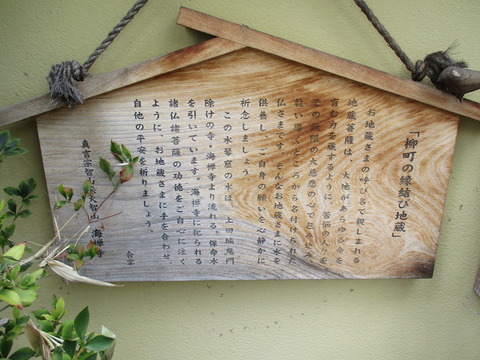 「柳町の縁結び地蔵」
お地蔵さまの呼び名で親しまれる
地蔵菩薩は、大地があらゆる命を
育む力を蔵するように、苦悩の人々を
その無限の大慈悲の心で包み込み、
救い導くところから名付けられた
仏さまです。そんなお地蔵さまに水を
供養し、ご自身の願いを心静かに
祈念しましょう。
この水琴窟の水は、上田城鬼門
除けの寺、海禅寺より流れる「保命水」
を引いています。海禅寺に祀られる
諸仏諸菩薩の功徳をご自心に注ぐ
ように、お地蔵さまに手を合わせ、
自他の平安を祈りましょう。
真言宗智山派 大智山 海禅寺
合掌